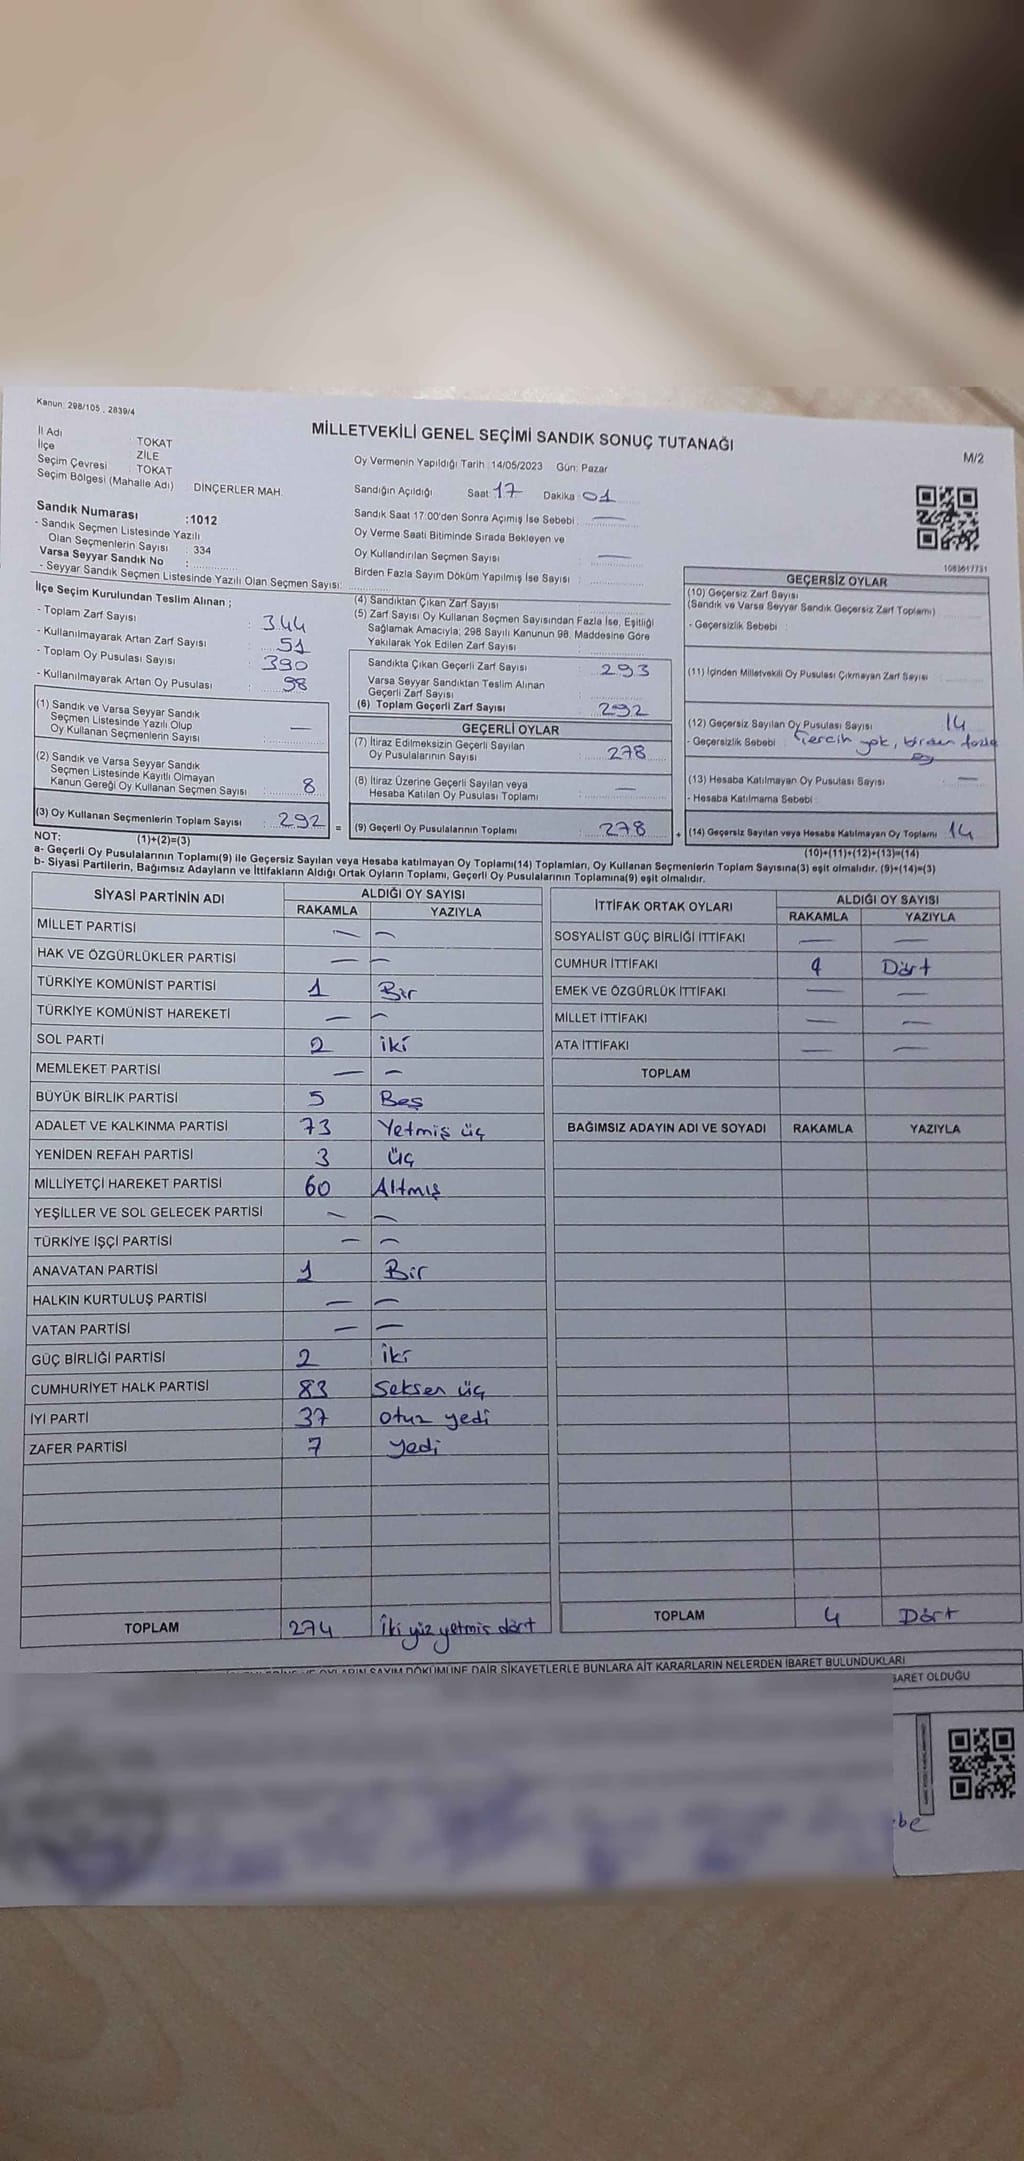 Kanun: 298/105 , 2839/4
MİLLETVEKİLİ GENEL SEÇİMİ SANDIK SONUÇ TUTANAĞI
M/2
İl Adı : TOKAT
İlçe : ZİLE
Seçim Çevresi : TOKAT
Seçim Bölgesi (Mahalle Adı) : DİNÇERLER MAH.
Oy Vermenin Yapıldığı Tarih : 14/05/2023 Gün: Pazar
Sandığın Açıldığı Saat: 17 Dakika: 01
Sandık Saat 17:00'den Sonra Açımış İse Sebebi : —
Oy Verme Saati Bitiminde Sırada Bekleyen ve
Oy Kullandırılan Seçmen Sayısı : —
Birden Fazla Sayım Döküm Yapılmış İse Sayısı :
Sandık Numarası :1012
- Sandık Seçmen Listesinde Yazılı
Olan Seçmenlerin Sayısı : 334
Varsa Seyyar Sandık No :
- Seyyar Sandık Seçmen Listesinde Yazılı Olan Seçmen Sayısı:
1083617731
İlçe Seçim Kurulundan Teslim Alınan ;
- Toplam Zarf Sayısı : 344
- Kullanılmayarak Artan Zarf Sayısı : 51
- Toplam Oy Pusulası Sayısı : 390
- Kullanılmayarak Artan Oy Pusulası : 98
(1) Sandık ve Varsa Seyyar Sandık
Seçmen Listesinde Yazılı Olup
Oy Kullanan Seçmenlerin Sayısı : —
(2) Sandık ve Varsa Seyyar Sandık
Seçmen Listesinde Kayıtlı Olmayan
Kanun Gereği Oy Kullanan Seçmen Sayısı : 8
(3) Oy Kullanan Seçmenlerin Toplam Sayısı : 292 =
(1)+(2)=(3)
(4) Sandıktan Çıkan Zarf Sayısı :
(5) Zarf Sayısı Oy Kullanan Seçmen Sayısından Fazla İse, Eşitliği
Sağlamak Amacıyla; 298 Sayılı Kanunun 98. Maddesine Göre
Yakılarak Yok Edilen Zarf Sayısı :
Sandıkta Çıkan Geçerli Zarf Sayısı : 293
Varsa Seyyar Sandıktan Teslim Alınan
Geçerli Zarf Sayısı :
(6) Toplam Geçerli Zarf Sayısı : 292
GEÇERLİ OYLAR
(7) İtiraz Edilmeksizin Geçerli Sayılan
Oy Pusulalarının Sayısı : 278
(8) İtiraz Üzerine Geçerli Sayılan veya
Hesaba Katılan Oy Pusulası Toplamı : —
(9) Geçerli Oy Pusulalarının Toplamı : 278 +
GEÇERSİZ OYLAR
(10) Geçersiz Zarf Sayısı
(Sandık ve Varsa Seyyar Sandık Geçersiz Zarf Toplamı) :
- Geçersizlik Sebebi :
(11) İçinden Milletvekili Oy Pusulası Çıkmayan Zarf Sayısı :
(12) Geçersiz Sayılan Oy Pusulası Sayısı : 14
- Geçersizlik Sebebi : Tercih yok, birden fazla
oy
(13) Hesaba Katılmayan Oy Pusulası Sayısı : —
- Hesaba Katılmama Sebebi :
(14) Geçersiz Sayılan veya Hesaba Katılmayan Oy Toplamı : 14
(10)+(11)+(12)+(13)=(14)
NOT:
a- Geçerli Oy Pusulalarının Toplamı(9) ile Geçersiz Sayılan veya Hesaba katılmayan Oy Toplamı(14) Toplamları, Oy Kullanan Seçmenlerin Toplam Sayısına(3) eşit olmalıdır. (9)+(14)=(3)
b- Siyasi Partilerin, Bağımsız Adayların ve İttifakların Aldığı Ortak Oyların Toplamı, Geçerli Oy Pusulalarının Toplamına(9) eşit olmalıdır.
SİYASİ PARTİNİN ADI ALDIĞI OY SAYISI
RAKAMLA YAZIYLA
MİLLET PARTİSİ — —
HAK VE ÖZGÜRLÜKLER PARTİSİ — —
TÜRKİYE KOMÜNİST PARTİSİ 1 Bir
TÜRKİYE KOMÜNİST HAREKETİ — —
SOL PARTİ 2 iki
MEMLEKET PARTİSİ — —
BÜYÜK BİRLİK PARTİSİ 5 Beş
ADALET VE KALKINMA PARTİSİ 73 Yetmiş üç
YENİDEN REFAH PARTİSİ 3 üç
MİLLİYETÇİ HAREKET PARTİSİ 60 Altmış
YEŞİLLER VE SOL GELECEK PARTİSİ — —
TÜRKİYE İŞÇİ PARTİSİ — —
ANAVATAN PARTİSİ 1 Bir
HALKIN KURTULUŞ PARTİSİ — —
VATAN PARTİSİ — —
GÜÇ BİRLİĞİ PARTİSİ 2 iki
CUMHURİYET HALK PARTİSİ 83 Seksen üç
İYİ PARTİ 37 otuz yedi
ZAFER PARTİSİ 7 yedi
TOPLAM 274 İki yüz yetmiş dört
İTTİFAK ORTAK OYLARI ALDIĞI OY SAYISI
RAKAMLA YAZIYLA
SOSYALİST GÜÇ BİRLİĞİ İTTİFAKI — —
CUMHUR İTTİFAKI 4 Dört
EMEK VE ÖZGÜRLÜK İTTİFAKI — —
MİLLET İTTİFAKI — —
ATA İTTİFAKI — —
TOPLAM
BAĞIMSIZ ADAYIN ADI VE SOYADI RAKAMLA YAZIYLA
TOPLAM 4 Dört
OYLARIN SAYIM DÖKÜMÜNE DAİR ŞİKAYETLERLE BUNLARA AİT KARARLARIN NELERDEN İBARET BULUNDUKLARI
OLDUĞU